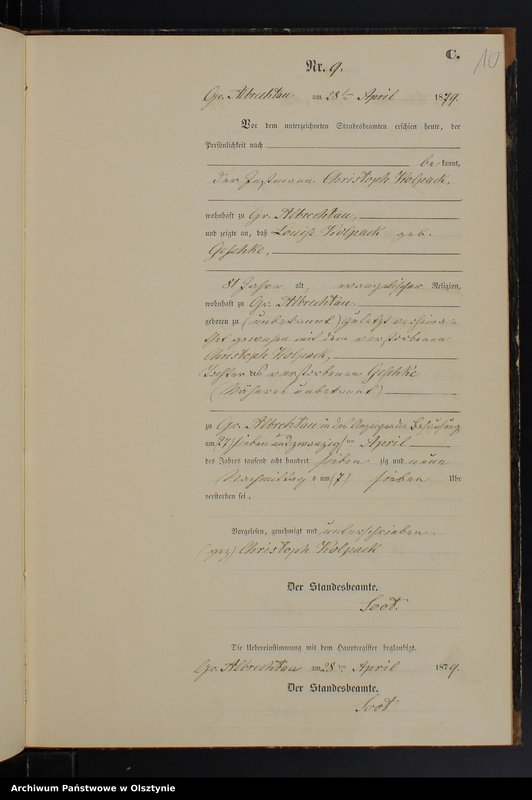 C.
10
Nr. 9.
Gr. Albrechtau am 28ten April 1879.
Vor dem unterzeichneten Standesbeamten erschien heute, der
Persönlichkeit nach
be kannt,
der Instmann Christoph Kolpack,
wohnhaft zu Gr. Albrechtau,
und zeigte an, daß Louise Kolpack geb.
Geschke,
81 Jahre alt, evangelischer Religion,
wohnhaft zu Gr. Albrechtau
geboren zu (unbekannt) zuletzt verheira-
thet gewesen mit dem verstorbenen
Christoph Kolpack,
Tochter des verstorbenen Geschke
(Näheres unbekannt)
zu Gr. Albrechtau in des Anzeigenden Behausung
am (27) sieben und zwanzigsten April
des Jahres tausend acht hundert sieben zig und neun
Nachmittags um (7) sieben Uhr
verstorben sei.
Vorgelesen, genehmigt und unterschrieben.
(gez) Christoph Kolpack
Der Standesbeamte.
Die Uebereinstimmung mit dem Hauptregister beglaubigt.
Gr. Albrechtau am 28ten April 1879.
Der Standesbeamte.
Archiwum Państwowe w Olsztynie